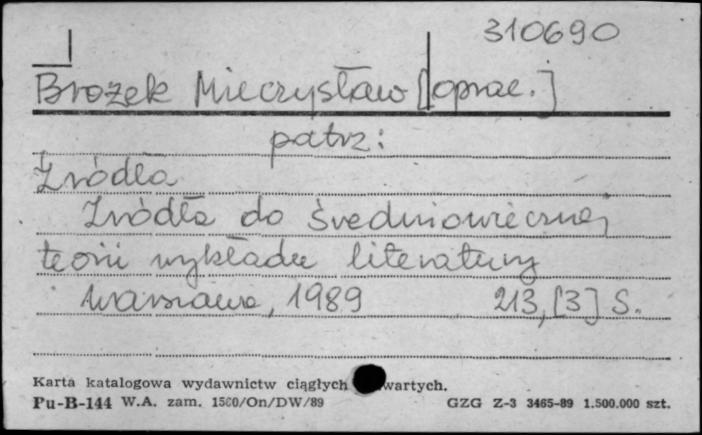 310690
Brożek Mieczysław [oprac.]
patrz:
Źródła
Źródła do średniowiecznej
teorii wykładu literatury
Warszawa, 1989 213,[3] s.
Karta katalogowa wydawnictw ciągłych wartych.
Pu-B-144 W.A. zam. 1560/On/DW/89 GZG Z-3 3465-89 1.500.000 szt.